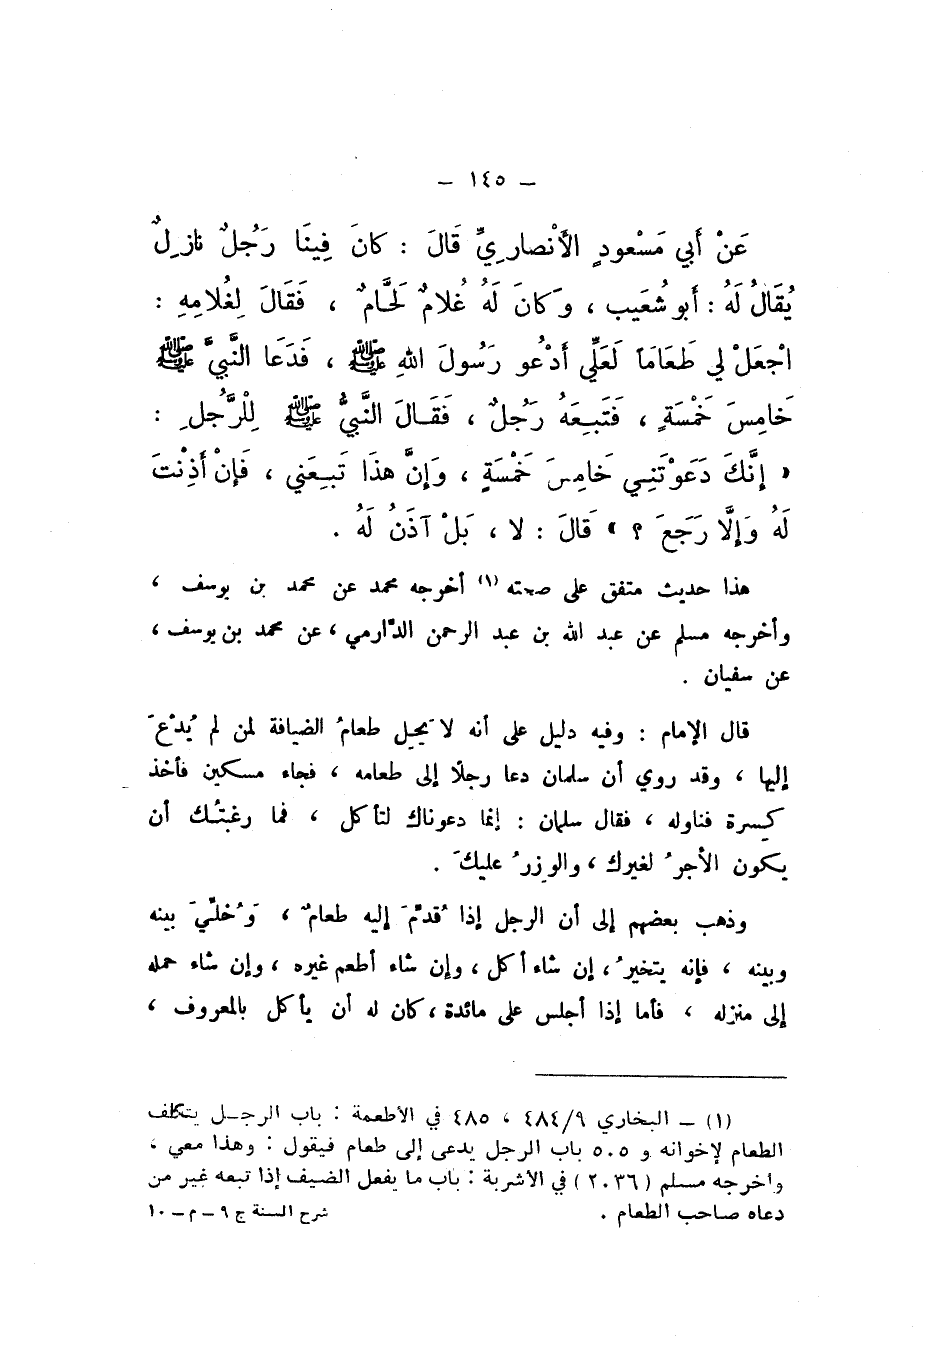 – ١٤٥ –
عَنْ أَبي مَسْعودٍ الأَنْصارِيِّ قَالَ : كانَ فِينَا رَجُلٌ نازِلٌ
يُقَالُ لَهُ : أَبو شُعَيب ، وَكانَ لَهُ غُلامٌ لَحَّامٌ ، فَقَالَ لِغُلامِهِ :
اجْعَلْ لي طَعَامَاً لَعَلِّي أَدْعُو رَسُولَ اللهِ ﷺ ، فَدَعَا النَّبيَّ ﷺ
خَامِسَ خَمْسَةٍ ، فَتَبِعَهُ رَجُلٌ ، فَقَالَ النَّبيُّ ﷺ لِلْرَّجُلِ :
« إِنَّكَ دَعَوْتَنِي خَامِسَ خَمْسَةٍ ، وَإِنَّ هذَا تَبِعَني ، فَإِنْ أَذِنْتَ
لَهُ وَإِلَّا رَجَعَ ؟ » قَالَ : لا ، بَلْ آذَنُ لَهُ .
هذا حديث متفق على صحته (١) أخرجه محمد عن محمد بن يوسف ،
وأخرجه مسلم عن عبد الله بن عبد الرحمن الدّارمي ، عن محمد بن يوسف ،
عن سفيان .
قال الإمام : وفيه دليل على أنه لا يَحِل طعامُ الضيافة لمن لم يُدْعَ
إليها ، وقد روي أن سلمان دعا رجلًا إلى طعامه ، فجاء مسكين فأخذ
كِسرة فناوله ، فقال سلمان : إنما دعوناك لتأكل ، فما رغبتُك أن
يكون الأجرُ لغيرك ، والوِزرُ عليكَ .
وذهب بعضهم إلى أن الرجل إذا قُدِّمَ إليه طعامٌ ، وَخُلِّيَ بينه
وبينه ، فإنه يتخيرُ ، إن شاء أكل ، وإن شاء أطعم غيره ، وإن شاء حمله
إلى منزله ، فأما إذا أجلس على مائدة ، كان له أن يأكل بالمعروف ،
(١) – البخاري ٤٨٤/٩ ، ٤٨٥ في الأطعمة : باب الرجل يتكلف
الطعام لإخوانه و ٥٠٥ باب الرجل يدعى إلى طعام فيقول : وهذا معي ،
وأخرجه مسلم ( ٢٠٣٦ ) في الأشربة : باب ما يفعل الضيف إذا تبعه غير من
دعاه صاحب الطعام .
شرح السنة ج ٩ – م – ١٠